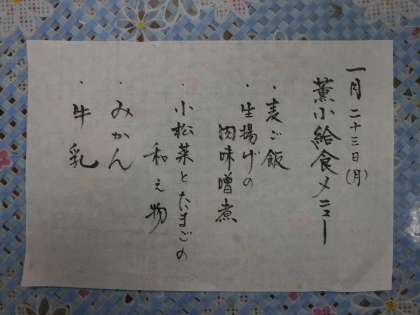 一月二十三日(月)
薫小給食メニュー
・麦ご飯
・生揚げの
肉味噌煮
・小松菜とたまごの
和え物
・みかん
・牛乳